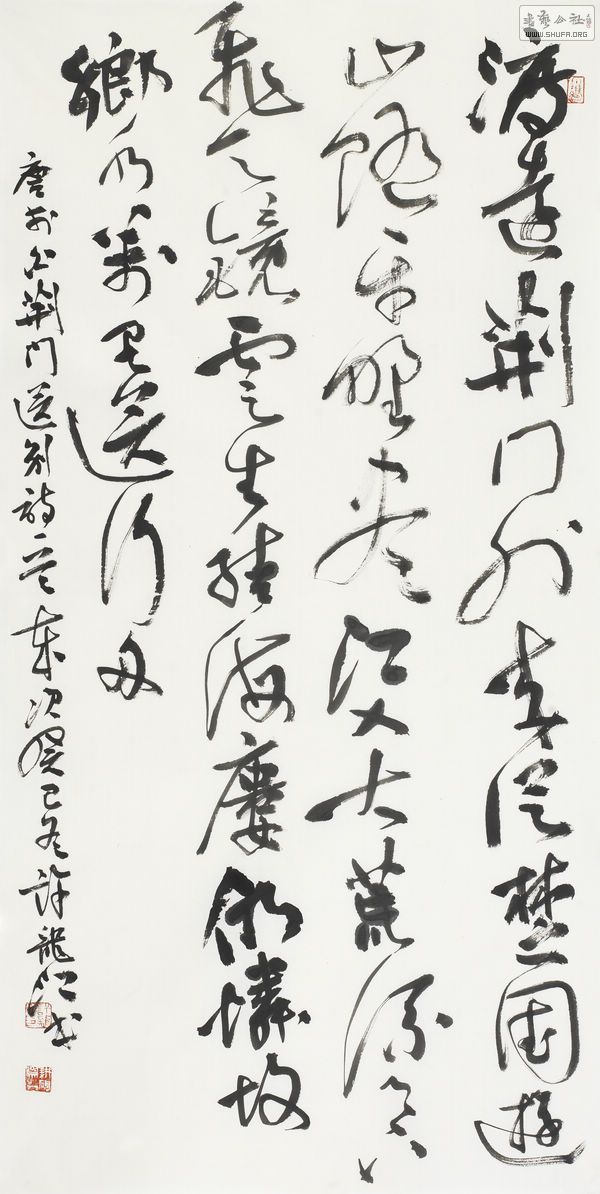 渡遠荊門外來從楚國遊
山隨平野盡江入大荒流月下
飛天鏡雲生結海廔仍憐故
鄉水萬里送行舟
唐李白荊門送別詩一首歲次癸巳冬許龍江書
書藝公社
WWW.SHUFA.ORG